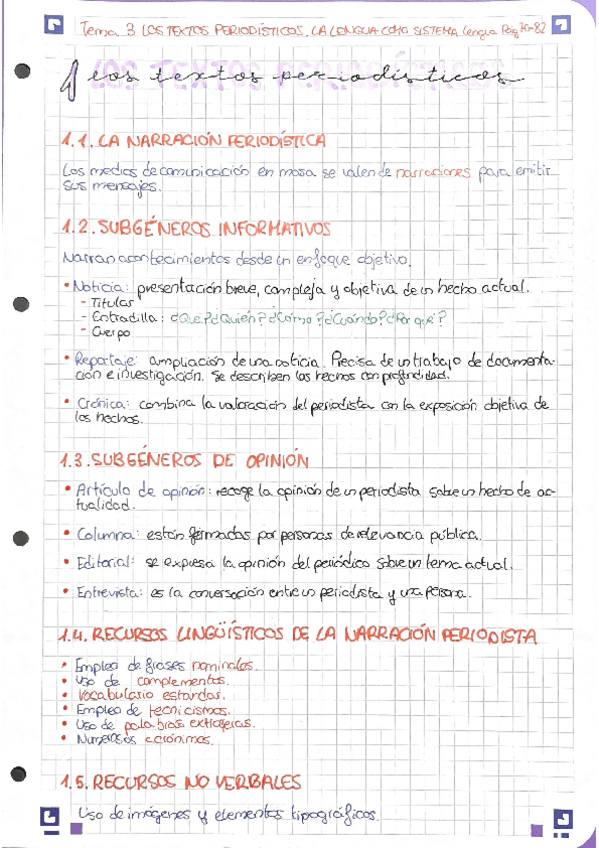 Tema 3 LOS TEXTOS PERIODÍSTICOS. LA LENGUA COMO SISTEMA Lengua Pág 70-82
1 LOS TEXTOS PERIODÍSTICOS
1.1. LA NARRACIÓN PERIODÍSTICA
Los medios de comunicación en masa se valen de narraciones para emitir
sus mensajes.
1.2. SUBGÉNEROS INFORMATIVOS
Narran acontecimientos desde un enfoque objetivo.
• Noticia: presentación breve, compleja y objetiva de un hecho actual.
- Titular
- Entradilla: ¿Qué? ¿Quién? ¿Cómo? ¿Cuándo? ¿Por qué?
- Cuerpo
• Reportaje: ampliación de una noticia. Precisa de un trabajo de documenta-
ción e investigación. Se describen los hechos con profundidad.
• Crónica: combina la valoración del periodista con la exposición objetiva de
los hechos.
1.3. SUBGÉNEROS DE OPINIÓN
• Artículo de opinión: recoge la opinión de un periodista sobre un hecho de ac-
tualidad.
• Columna: están firmadas por personas de relevancia pública.
• Editorial: se expresa la opinión del periódico sobre un tema actual.
• Entrevista: es la conversación entre un periodista y una persona.
1.4. RECURSOS LINGÜÍSTICOS DE LA NARRACIÓN PERIODISTA
• Empleo de frases nominales.
• Uso de complementos.
• Vocabulario estandar.
• Empleo de tecnicismos.
• Uso de palabras extrajeras.
• Numerosos acrónimos.
1.5. RECURSOS NO VERBALES
Uso de imágenes y elementos tipográficos.